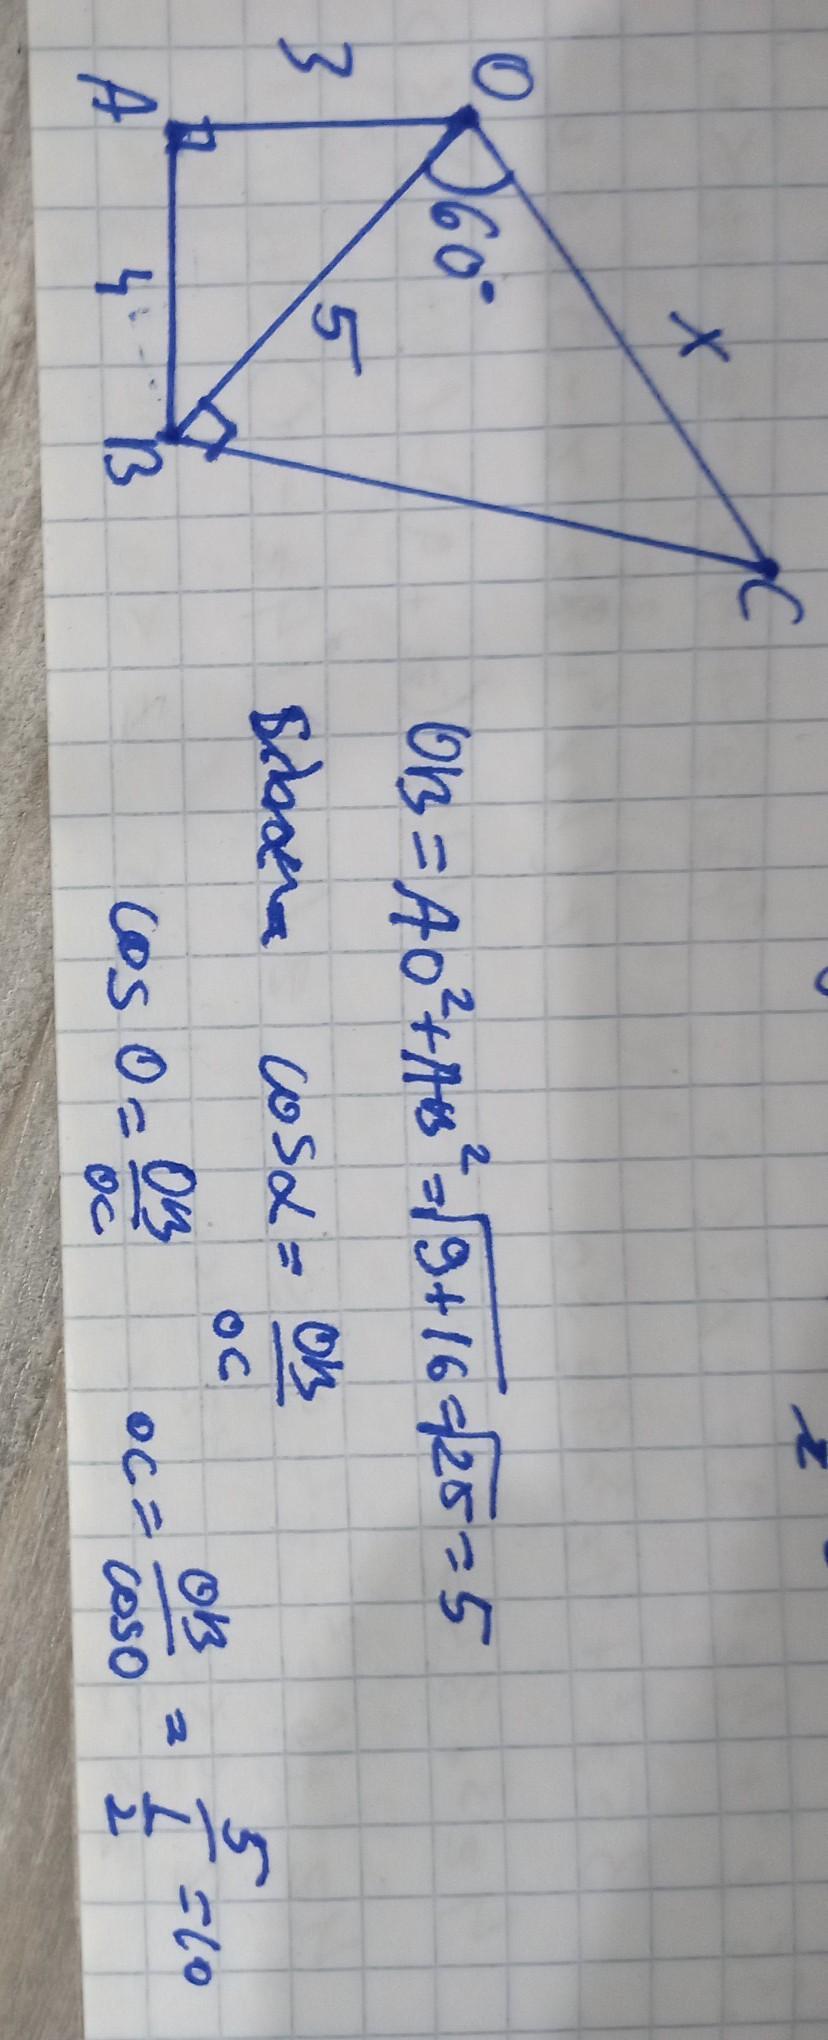 O
3
60°
x
5
A
4
B
C
OB = AO² + AB² = √9+16 = √25 = 5
cos α = OB/OC
cos O = OB/OC OC = OB/cos O = 5/(1/2) = 10